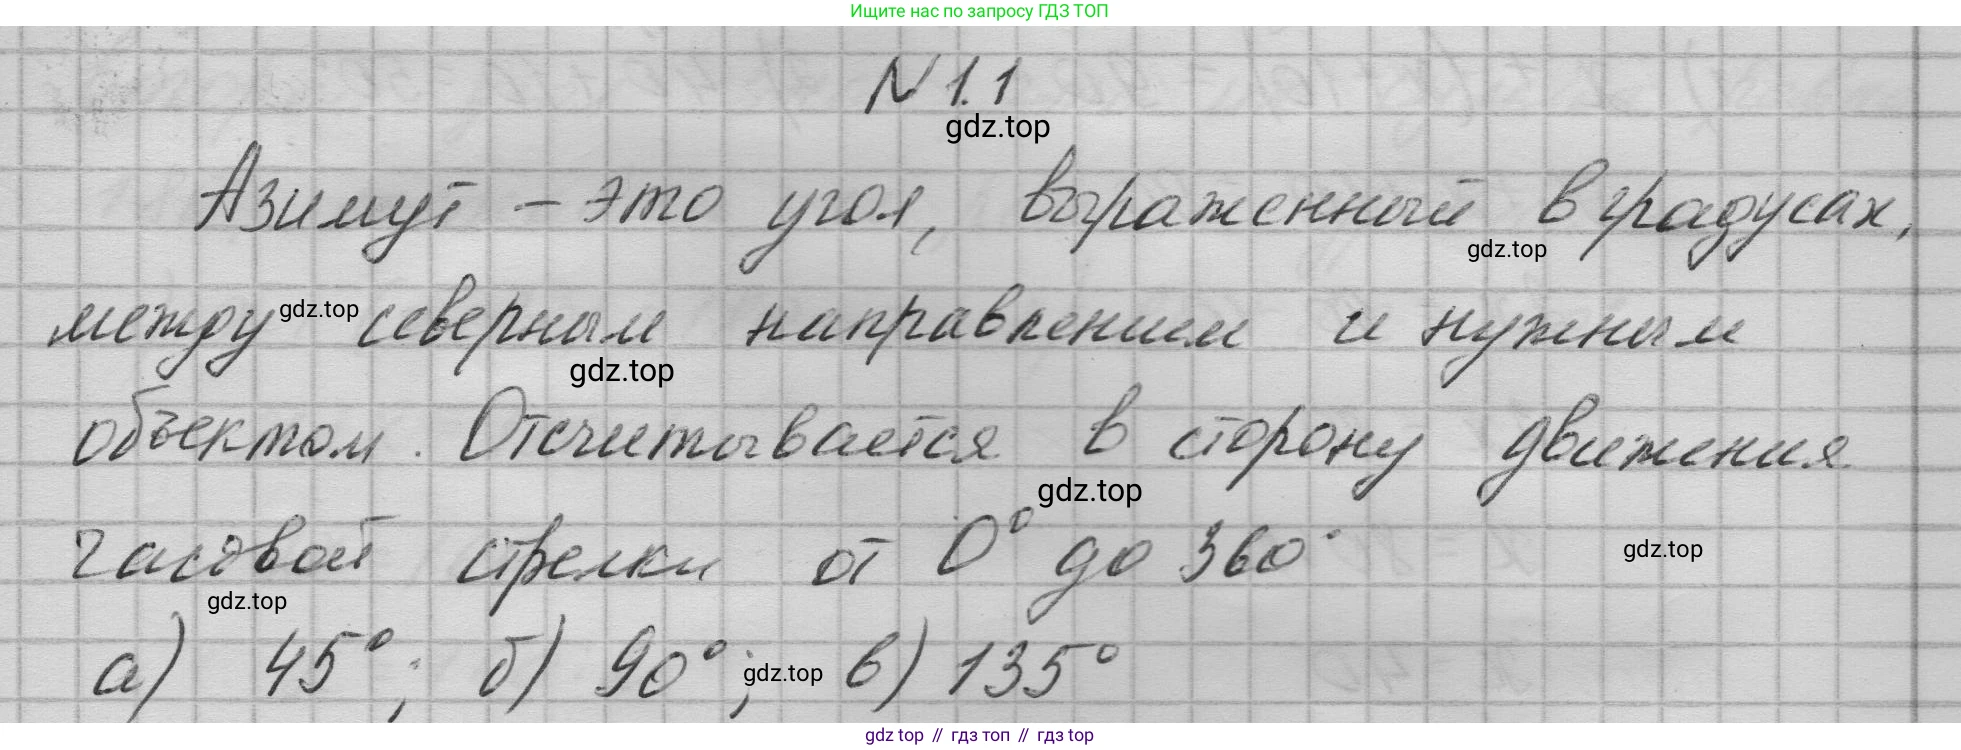 Ищите нас по запросу ГДЗ ТОП
N 1.1
gdz.top
Азимут – это угол, выраженный в градусах,
gdz.top
между северным направлением и нужным
gdz.top
gdz.top
объектом. Отсчитывается в сторону движения
gdz.top
часовой стрелки от 0° до 360°
gdz.top
gdz.top
а) 45°; б) 90°; в) 135°
gdz.top
gdz top // гдз топ // гдз top